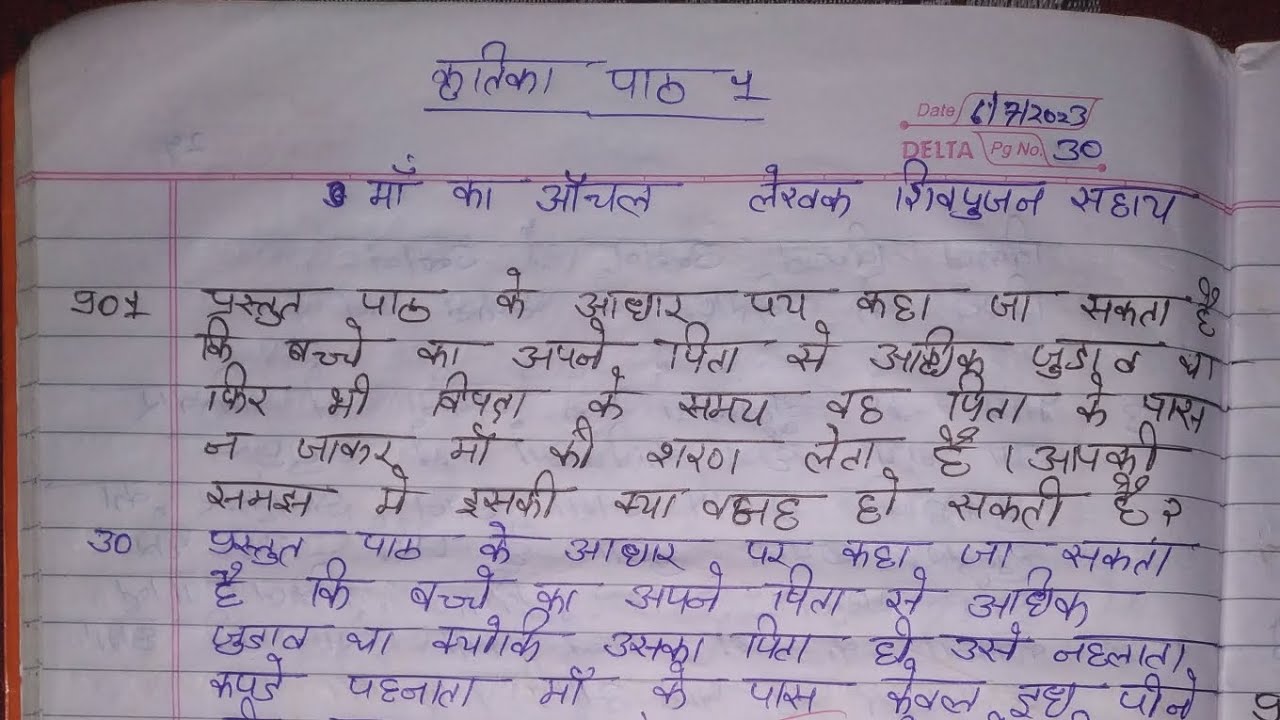 कृतिका पाठ 1
Date 6/7/2023
DELTA Pg No. 30
माँ का आँचल लेखक शिवपुजन सहाय
प्र01 प्रस्तुत पाठ के आधार पय कहा जा सकता है
कि बच्चे का अपने पिता से अधिक जुडाव था
फिर भी विपदा के समय वह पिता के पास
न जाकर माँ की शरण लेता है । आपकी
समझ मे इसकी क्या वजह हो सकती है?
उ0 प्रस्तुत पाठ के आधार पर कहा जा सकता
है कि बच्चे का अपने पिता से अधिक
जुडाव था क्योकि उसका पिता ही उसे नहलाता
कपडे पहनाता माँ के पास केवल दुध पीने